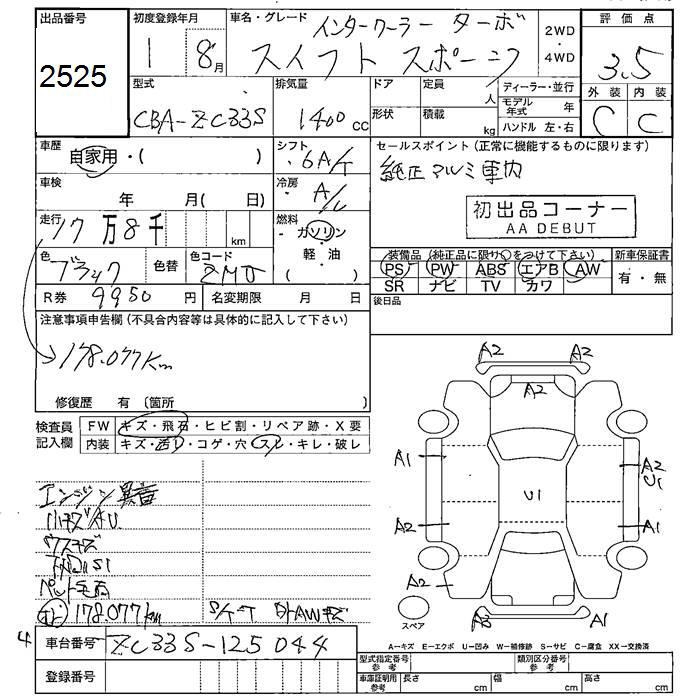 出品番号
2525
初度登録年月
1 8月
車名・グレード
インタークーラー ターボ
スイフト スポーツ
2WD
・
4WD
評価点
3.5
外装 内装
C C
型式
CBA-ZC33S
排気量
1400cc
ドア
形状
定員
人
積載
kg
ディーラー・並行
モデル年式 年
ハンドル 左・右
車歴
自家用・( )
シフト
6A/T
車検
年 月( 日)
冷房
A/C
走行
17万8千 km
燃料
ガソリン
・
軽・油
( )
色
ブラック
色替
色コード
ZMJ
R券 9950円
名変期限 月 日
セールスポイント(正常に機能するものに限ります)
純正アルミ 車内
初出品コーナー
AA DEBUT
装備品(純正品に限り○をつけて下さい)
PS PW ABS エアB AW
SR ナビ TV カワ
新車保証書
有・無
後日品
注意事項申告欄(不具合内容等は具体的に記入して下さい)
178.077Km
修復歴 有(箇所
検査員
記入欄
FW キズ・飛石・ヒビ割・リペア跡・X要
内装 キズ・汚レ・コゲ・穴・スレ・キレ・破レ
エンジン異音
178.077km
外AWキズ
4
車台番号 ZC33S-125044
登録番号
A2 A2
A2
A1
A2
U1
U1
A2
A1
A2
スペア
A3
A1
A-キズ E-エクボ U-凹み W-補修跡 S-サビ C-腐食 XX-交換済
型式指定番号
参考
類別区分番号
参考
車庫証明用
参考
長さ cm
幅 cm
高さ cm